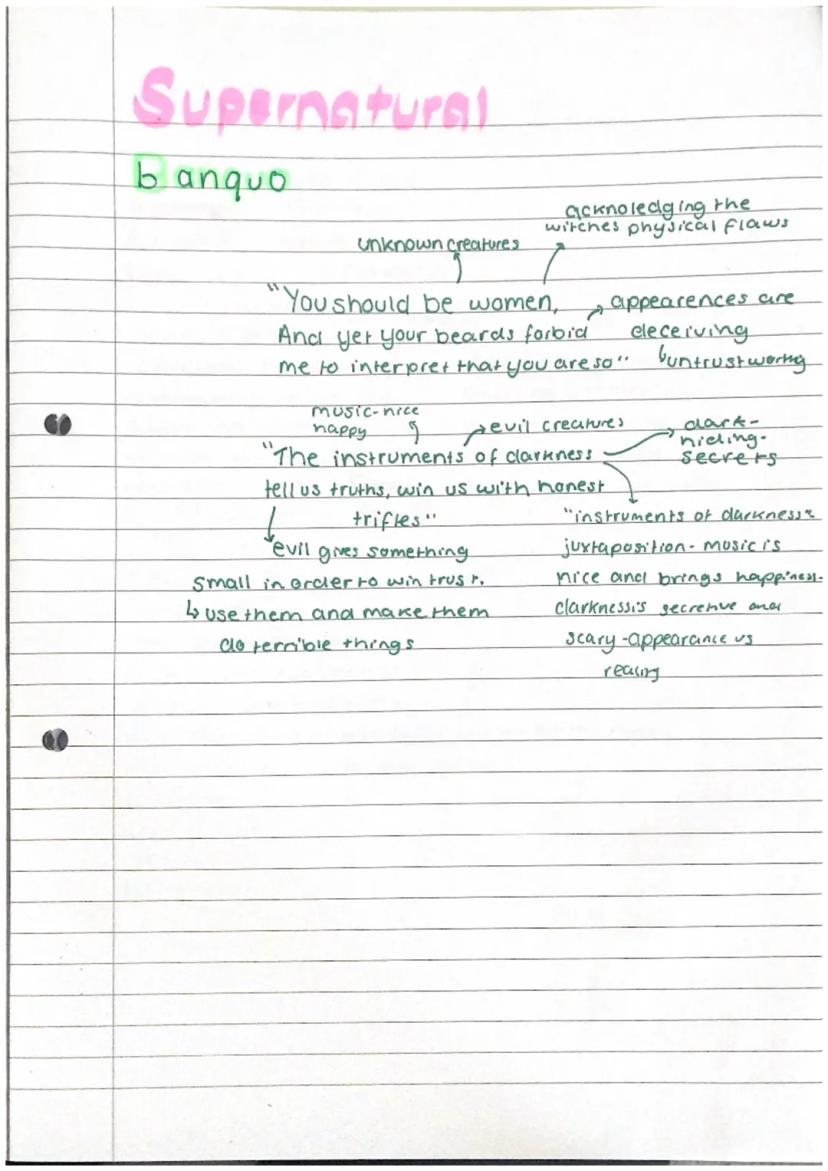 Supernatural
banquo
acknoledging the
witches physical flaws
unknown creatures
"You should be women,
appearences are
And yet your beards forbid
deceiving
me to interpret that you are so"
untrustworthy
music-nice
happy
evil creatures
dark-
hiding-
secrets
"The instruments of darkness
tell us truths, win us with honest
trifles"
evil gives something
small in order to win trust.
use them and make them
do terrible things
"instruments of darkness"
juxtaposition- music is
nice and brings happiness-
darkness is secretive and
scary-appearance vs
reality